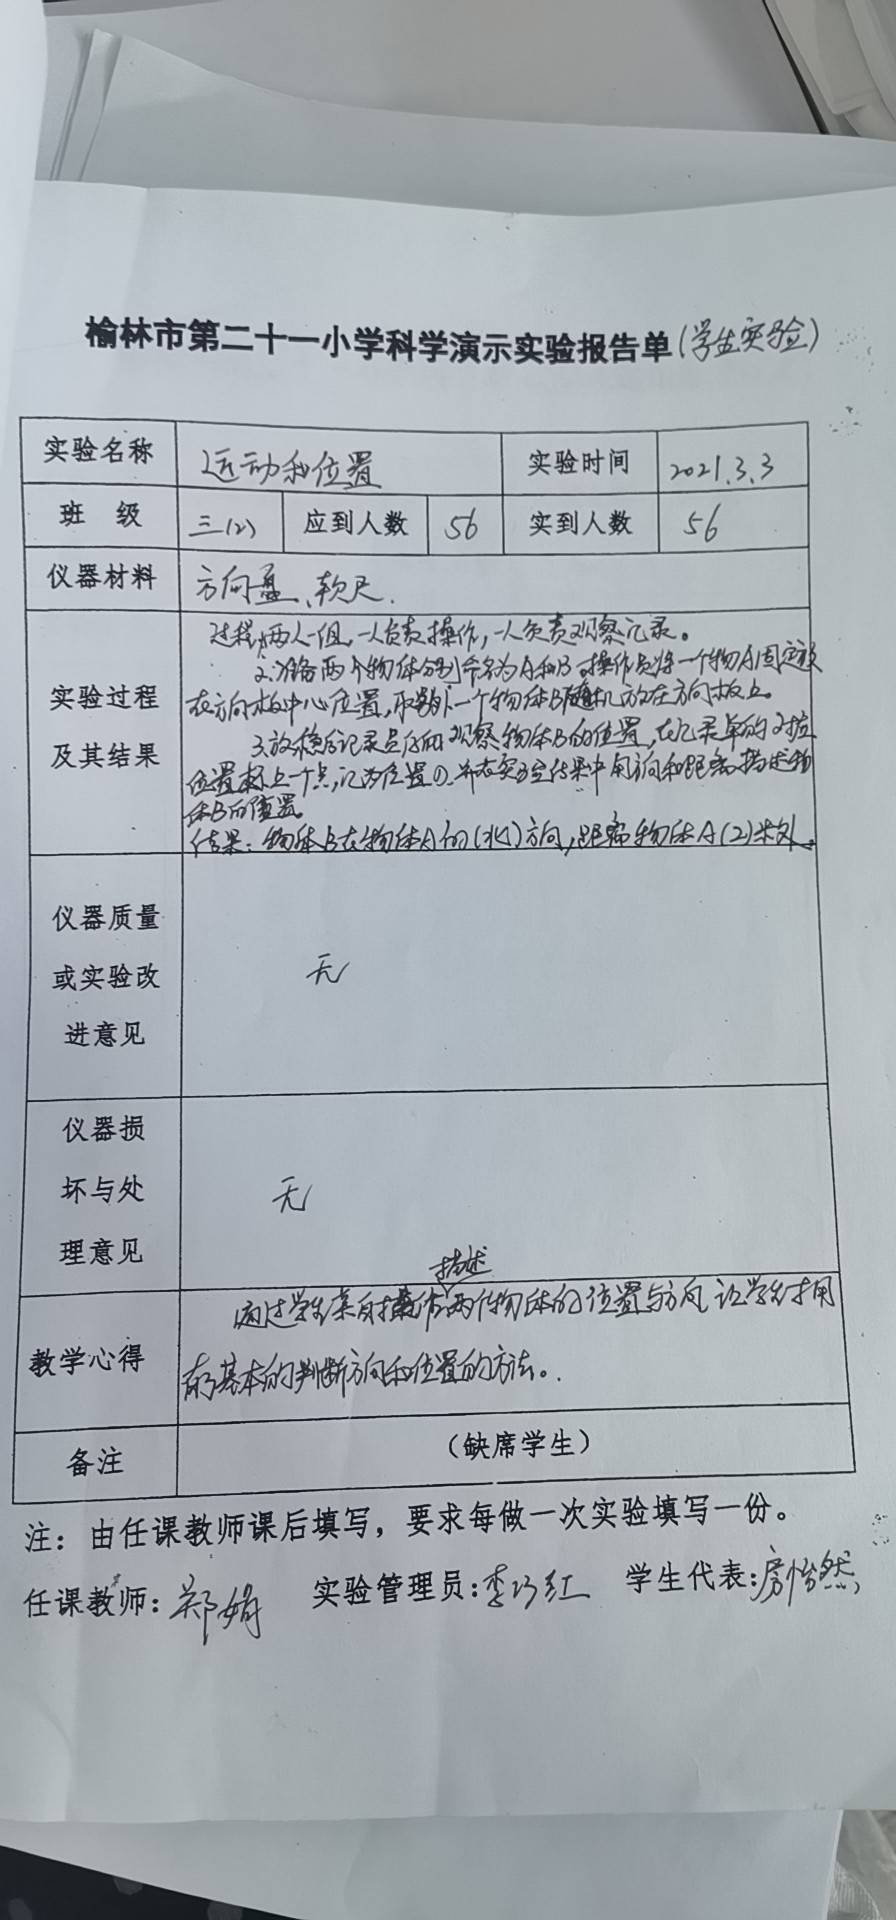 榆林市第二十一小学科学演示实验报告单(学生实验)
实验名称 运动和位置 实验时间 2021.3.3
班 级 三(2) 应到人数 56 实到人数 56
仪器材料 方向盘、软尺.
实验过程
及其结果
过程:两人一组,一人负责操作,一人负责观察记录。
2.准备两个物体分别命名为A和B,操作员将一个物A固定放
在方向板中心位置,取另外一个物体B随机放在方向板上。
3.放稳后记录员仔细观察物体B的位置,在记录单的对应
位置标上一个点,记为位置①.并在实验结果中用方向和距离描述物
体B的位置。
结果:物体B在物体A的(北)方向,距离物体A(2)米处.
仪器质量
或实验改
进意见
无
仪器损
坏与处
理意见
无
描述
教学心得
通过学生亲自操作两个物体的位置与方向,让学生才用
有了基本的判断方向和位置的方法。
备注 (缺席学生)
注:由任课教师课后填写,要求每做一次实验填写一份。
任课教师:郑娟 实验管理员:李巧红 学生代表:房怡然